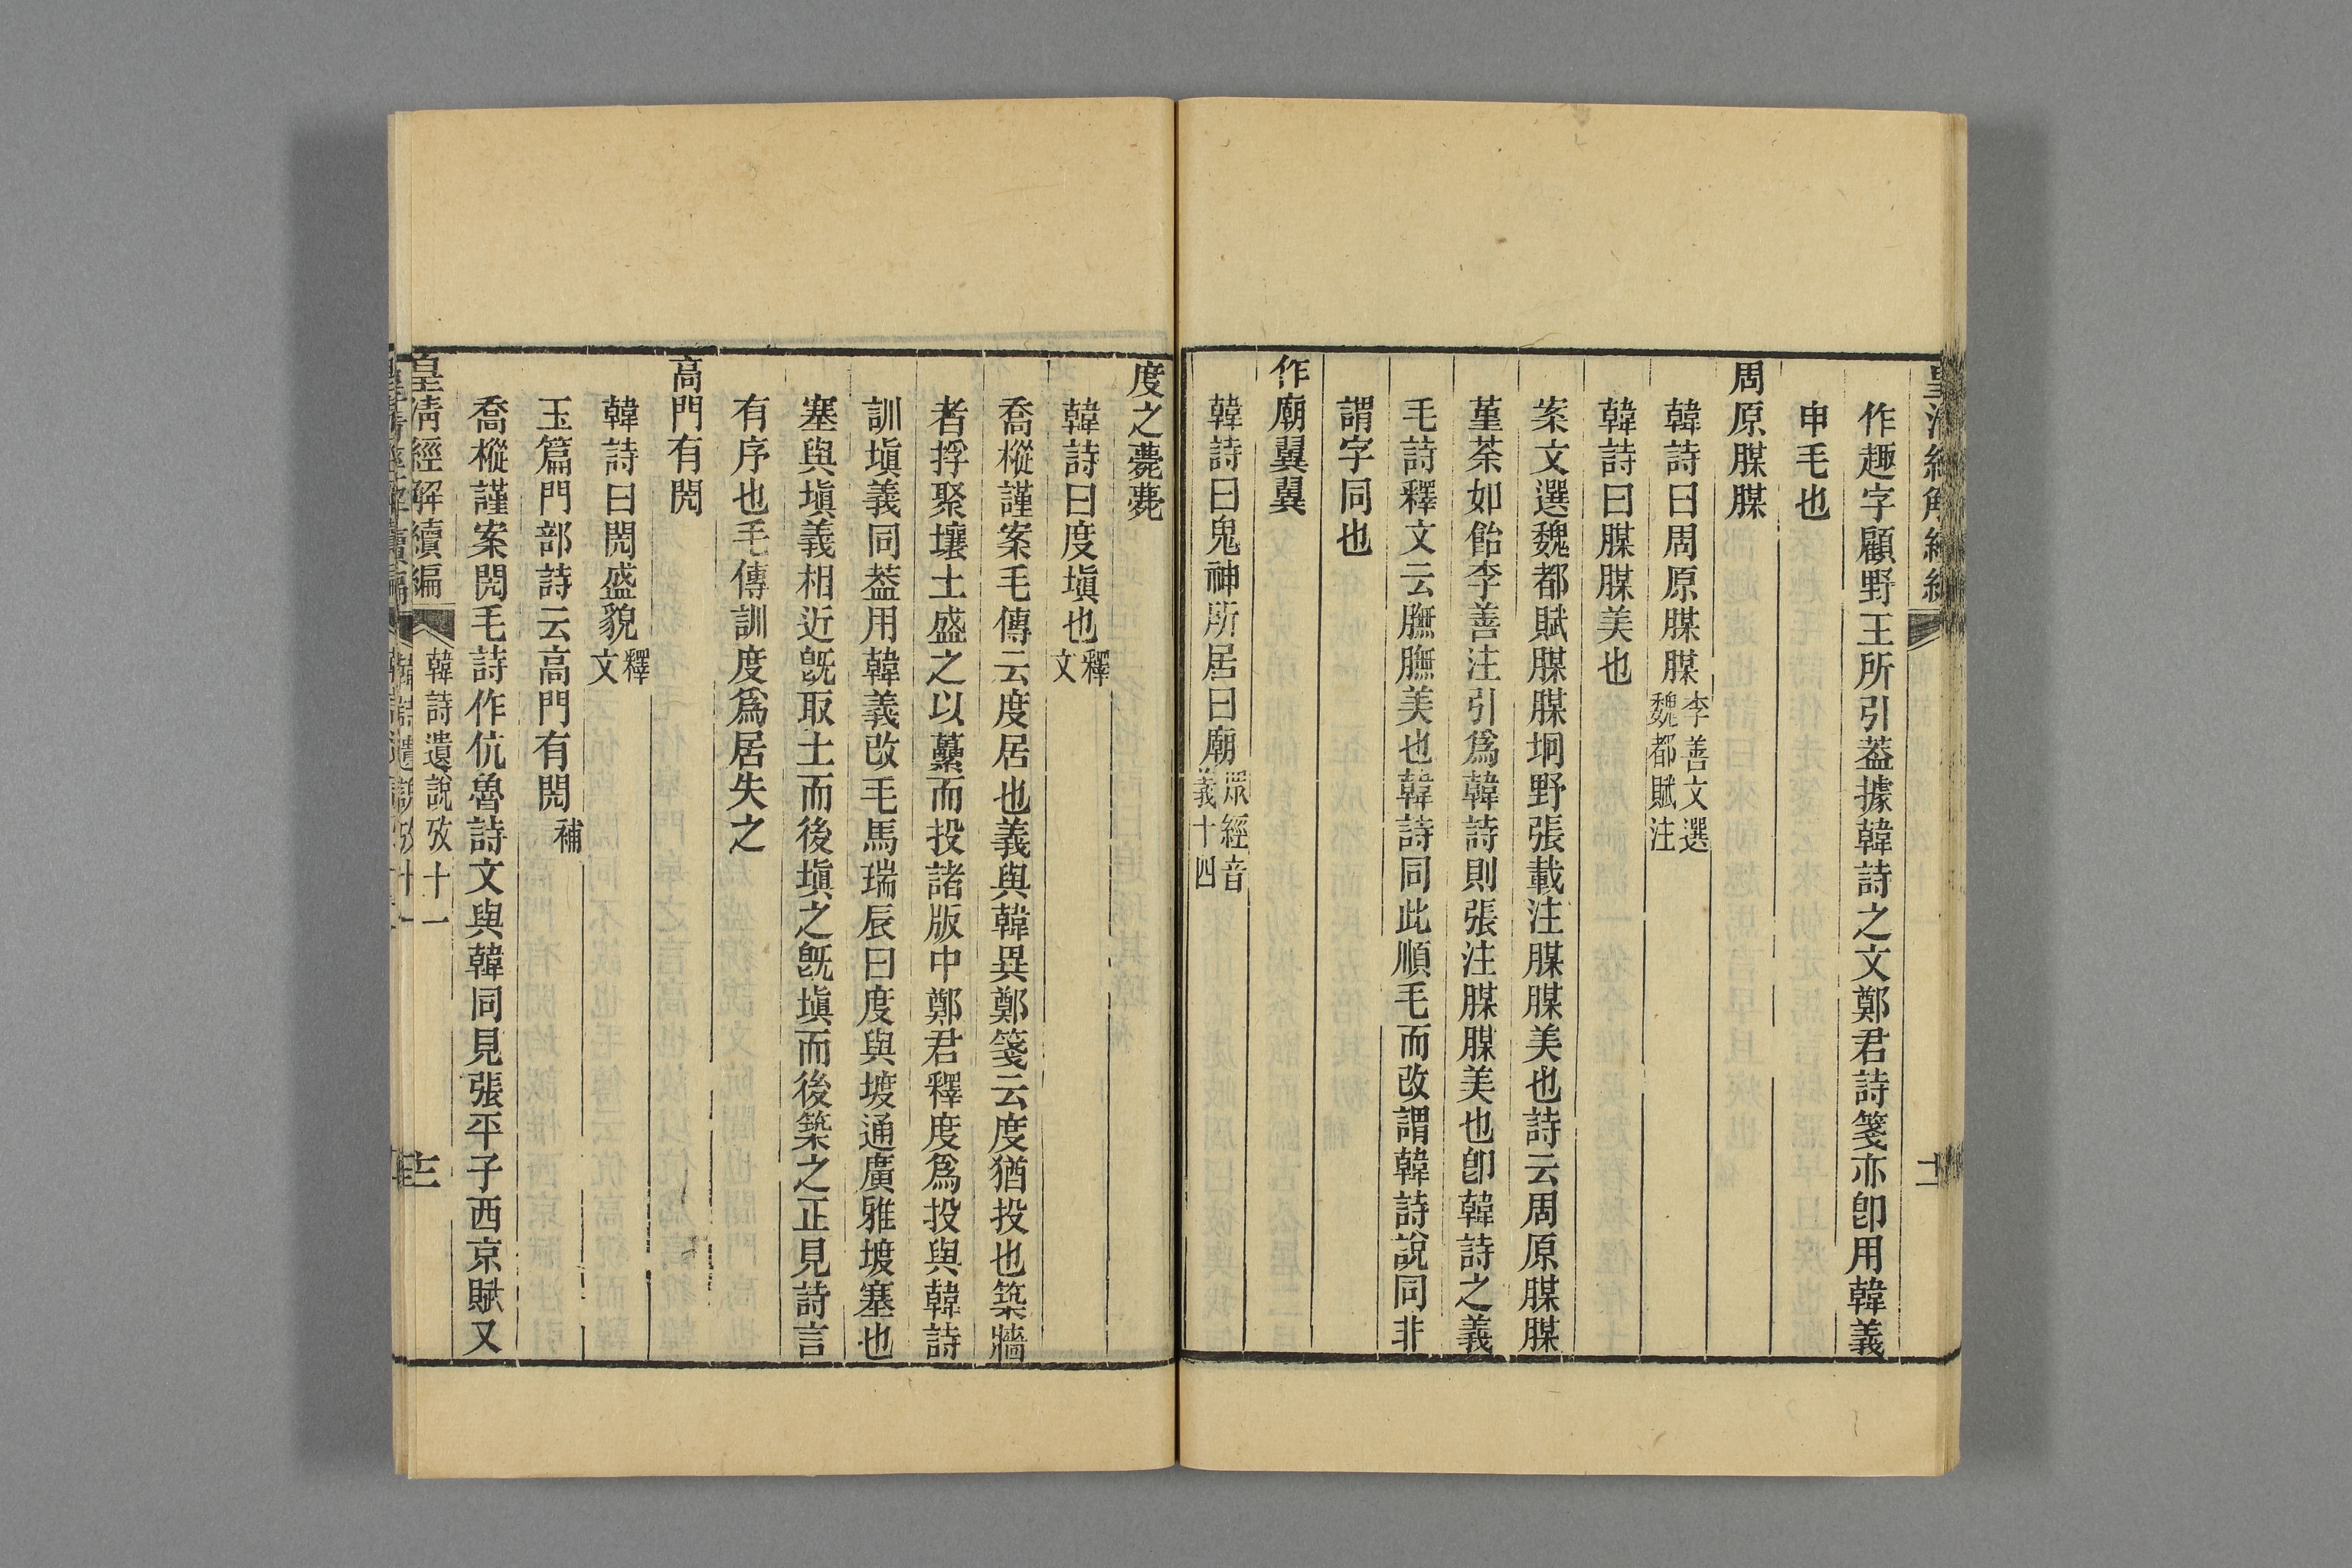 作趣字顧野王所引葢據韓詩之文鄭君詩箋亦卽用韓義
申毛也
周原腜腜
韓詩曰周原腜腜李善文選魏都賦注
韓詩曰腜腜美也
案文選魏都賦腜腜坰野張載注腜腜美也詩云周原腜腜
堇荼如飴李善注引爲韓詩則張注腜腜美也卽韓詩之義
毛詩釋文云膴膴美也韓詩同此順毛而改謂韓詩說同非
謂字同也
作廟翼翼
韓詩曰鬼神所居曰廟眾經音義十四
度之薨薨
韓詩曰度塡也釋文
喬樅謹案毛傳云度居也義與韓異鄭箋云度猶投也築牆
者捊聚壤土盛之以虆而投諸版中鄭君釋度爲投與韓詩
訓塡義同葢用韓義改毛馬瑞辰曰度與㡯通廣雅㡯塞也
塞與塡義相近旣取土而後塡之旣塡而後築之正見詩言
有序也毛傳訓度爲居失之
高門有閌
韓詩曰閌盛貌釋文
玉篇門部詩云高門有閌補
喬樅謹案閌毛詩作伉魯詩文與韓同見張平子西京賦又
皇清經解續編
韓詩遺說攷十一